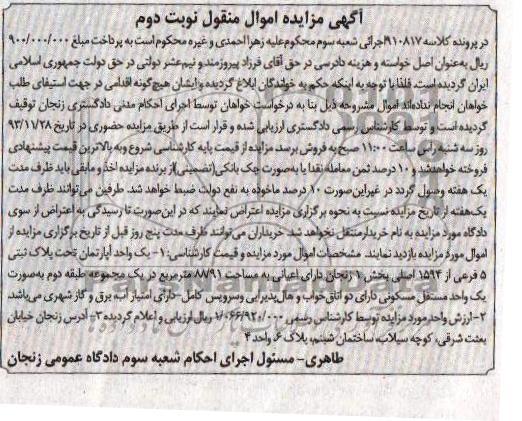 آگهی مزایده اموال منقول نوبت دوم
در پرونده کلاسه ۹۱۰۸۱۷اجرائی شعبه سوم محکوم‌علیه زهرا احمدی و غیره محکوم است به پرداخت مبلغ ۹۰۰/۰۰۰/۰۰۰
ریال به‌عنوان اصل خواسته و هزینه دادرسی در حق آقای فرزاد پیروزمند و نیم‌عشر دولتی در حق دولت جمهوری اسلامی
ایران گردیده است. فلذا با توجه به اینکه حکم به خواندگان ابلاغ گردیده و ایشان هیچ‌گونه اقدامی در جهت استیفای طلب
خواهان انجام نداده‌اند اموال مشروحه ذیل بنا به درخواست خواهان توسط اجرای احکام مدنی دادگستری زنجان توقیف
گردیده است و توسط کارشناس رسمی دادگستری ارزیابی شده و قرار است از طریق مزایده حضوری در تاریخ ۹۳/۱۱/۲۸
روز سه شنبه راس ساعت ۱۱:۰۰ صبح به فروش برسد. مزایده از قیمت پایه کارشناسی شروع و به بالاترین قیمت پیشنهادی
فروخته خواهد شد و ۱۰ درصد ثمن معامله نقدا یا به‌صورت چک بانکی(تضمینی)از برنده مزایده اخذ و مابقی باید ظرف مدت
یک هفته وصول گردد در غیراین‌صورت ۱۰ درصد ماخوذه به نفع دولت ضبط خواهد شد. طرفین می‌توانند ظرف مدت
یک‌هفته از تاریخ مزایده نسبت به نحوه برگزاری مزایده اعتراض نمایند که در این‌صورت تا رسیدگی به اعتراض از سوی
دادگاه مورد مزایده به نام خریدار منتقل نخواهد شد. خریداران می‌توانند ظرف مدت پنج روز قبل از تاریخ برگزاری مزایده از
اموال مورد مزایده بازدید نمایند. مشخصات اموال مورد مزایده و قیمت کارشناسی: ۱- یک واحد آپارتمان تحت پلاک ثبتی
۵ فرعی از ۱۵۹۴ اصلی بخش ۱ زنجان دارای اعیانی به مساحت ۸۸۹۱ مترمربع در یک مجموعه طبقه دوم به‌صورت
یک واحد مستقل مسکونی دارای دو اتاق‌خواب و هال‌پذیرایی وسرویس کامل -دارای امتیاز آب، برق و گاز شهری می‌باشد.
۲-ارزش واحد مورد مزایده توسط کارشناس رسمی ۱/۰۶۶/۹۲۰/۰۰۰ ریال ارزیابی و اعلام گردیده ۳- آدرس زنجان خیابان
بعثت شرقی، کوچه سیلاب، ساختمان شبنم، پلاک ۶، واحد ۴
طاهری- مسئول اجرای احکام شعبه سوم دادگاه عمومی زنجان
ParsNamadData